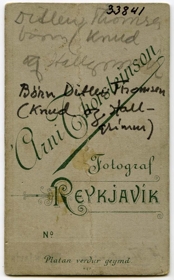 33841
Ditlev Thomsen
børn / Knud
og Hallgrímur
Árni Thorsteinsson
Börn Ditlev Thomsen
(Knud og Hall-
grímur)
Fotograf
REYKJAVÍK
No
Platan verður geymd